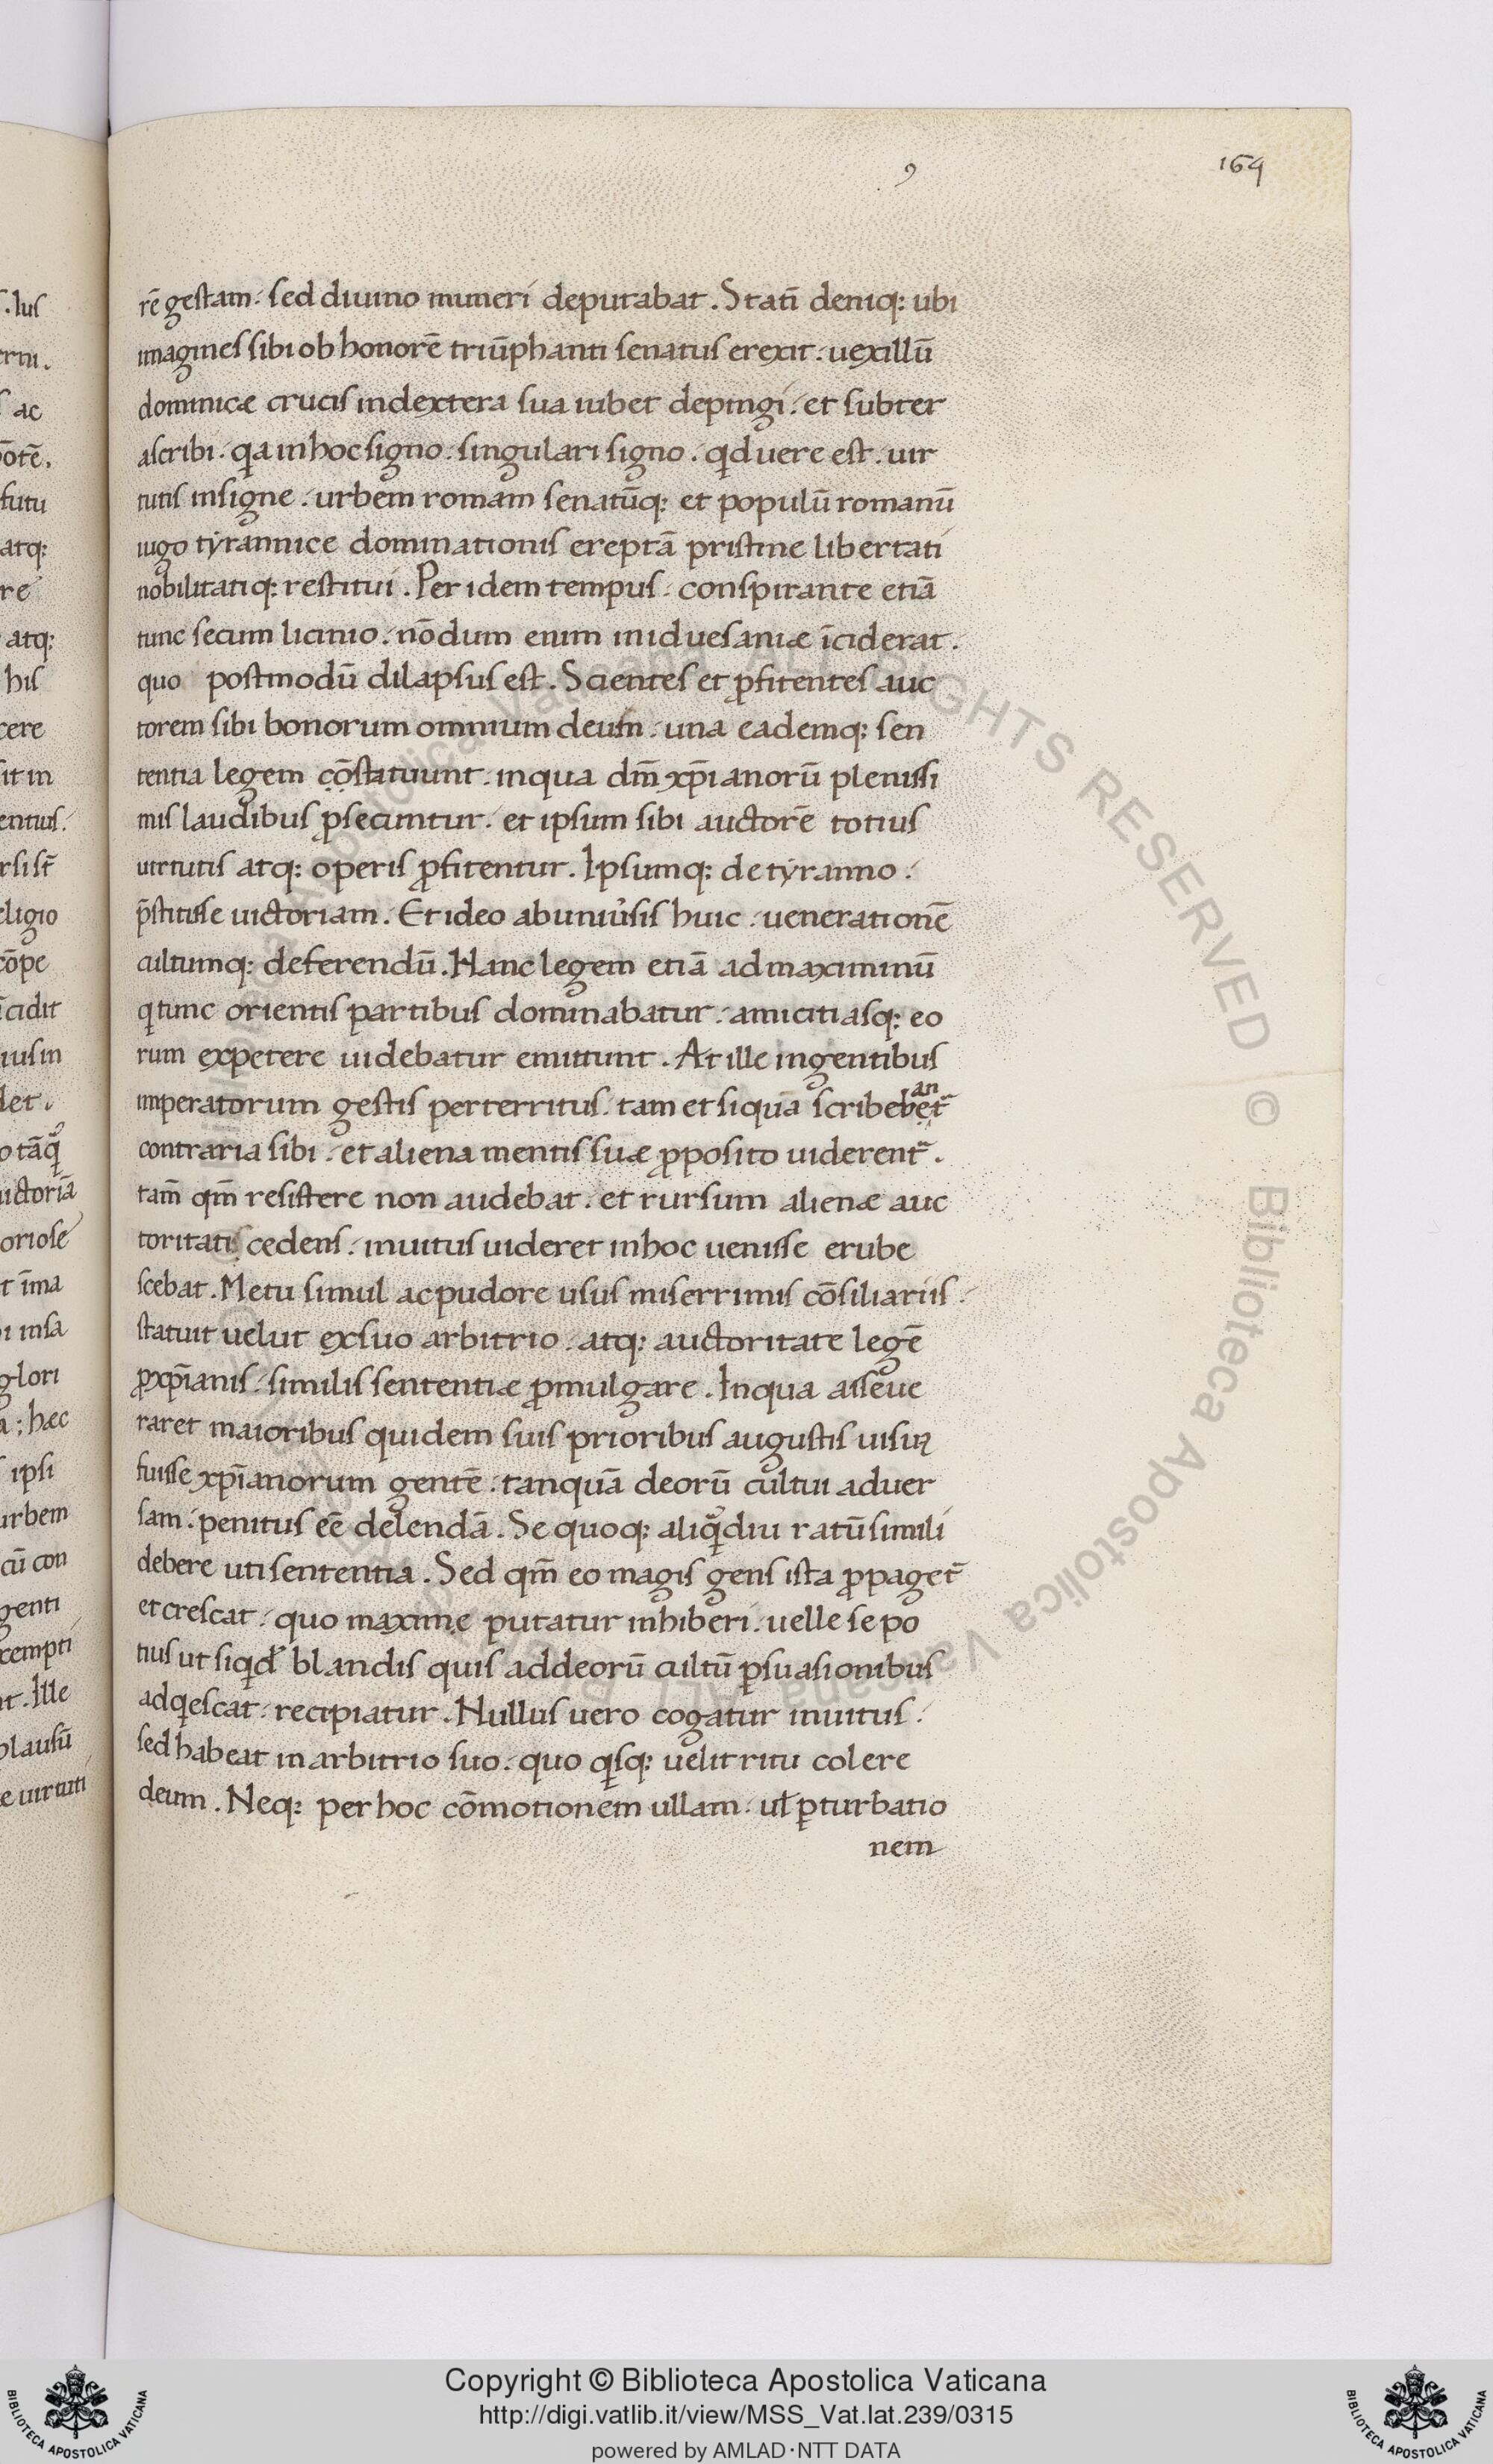 9 164
rē gestam. sed diuino muneri deputabat. Statī deniq: ubi
imagines sibi ob honorē triūphanti senatus erexit. uexillū
dominicæ crucis in dextera sua iubet depingi. et subter
ascribi. qa in hoc signo. singulari signo. qd uere est. uir
tutis insigne. urbem romam senatūq: et populū romanū
iugo tyrannice dominationis ereptā pristine libertati
nobilitatiq: restitui. Per idem tempus. conspirante etiā
tunc secum licinio. nōdum enim in id uesaniæ īciderat.
quo postmodū dilapsus est. Scientes et ꝓfitentes auc
torem sibi bonorum omnium deum. una eademq: sen
tentia legem cōstatuunt. in qua dm̄ xp̄ianorū plenissi
mis laudibus ꝓsecuntur. et ipsum sibi auctorē totius
uirtutis atq: operis ꝓfitentur. Ipsumq: de tyranno.
p̄stitisse uictoriam. Et ideo ab uniūsis huic. uenerationē
cultumq: deferendū. Hanc legem etiā ad maximinū
q tunc orientis partibus dominabatur. amicitiasq: eo
rum expetere uidebatur emittunt. At ille ingentibus
imperatorum gestis perterritus. tam et si quā scribebet̄
an
contraria sibi. et aliena mentis suæ ꝓposito uiderent̄.
tam̄ qm̄ resistere non audebat. et rursum alienæ auc
toritatis cedens. inuitus uideret in hoc uenisse erube
scebat. Metu simul ac pudore usus miserrimis cōsiliariis.
statuit uelut ex suo arbitrio. atq: auctoritate legē
ꝓ xp̄ianis. similis sententiæ ꝓmulgare. In qua asseue
raret maioribus quidem suis prioribus augustis uisuꝝ
fuisse xp̄ianorum gentē. tanquā deorū cultui aduer
sam. penitus eē delendā. Se quoq: aliq̄diu ratū simili
debere uti sententia. Sed qm̄ eo magis gens ista ꝓpaget̄
et crescat. quo maxime putatur inhiberi. uelle se po
tius ut siqd blandis quis ad deorū cultū ꝑsuasionibus
adqescat. recipiatur. Nullus uero cogatur inuitus.
sed habeat in arbitrio suo. quo qsq: uelit ritu colere
deum. Neq: per hoc cōmotionem ullam. ul̄ ꝑturbatio
nem
Copyright © Biblioteca Apostolica Vaticana
http://digi.vatlib.it/view/MSS_Vat.lat.239/0315
powered by AMLAD·NTT DATA